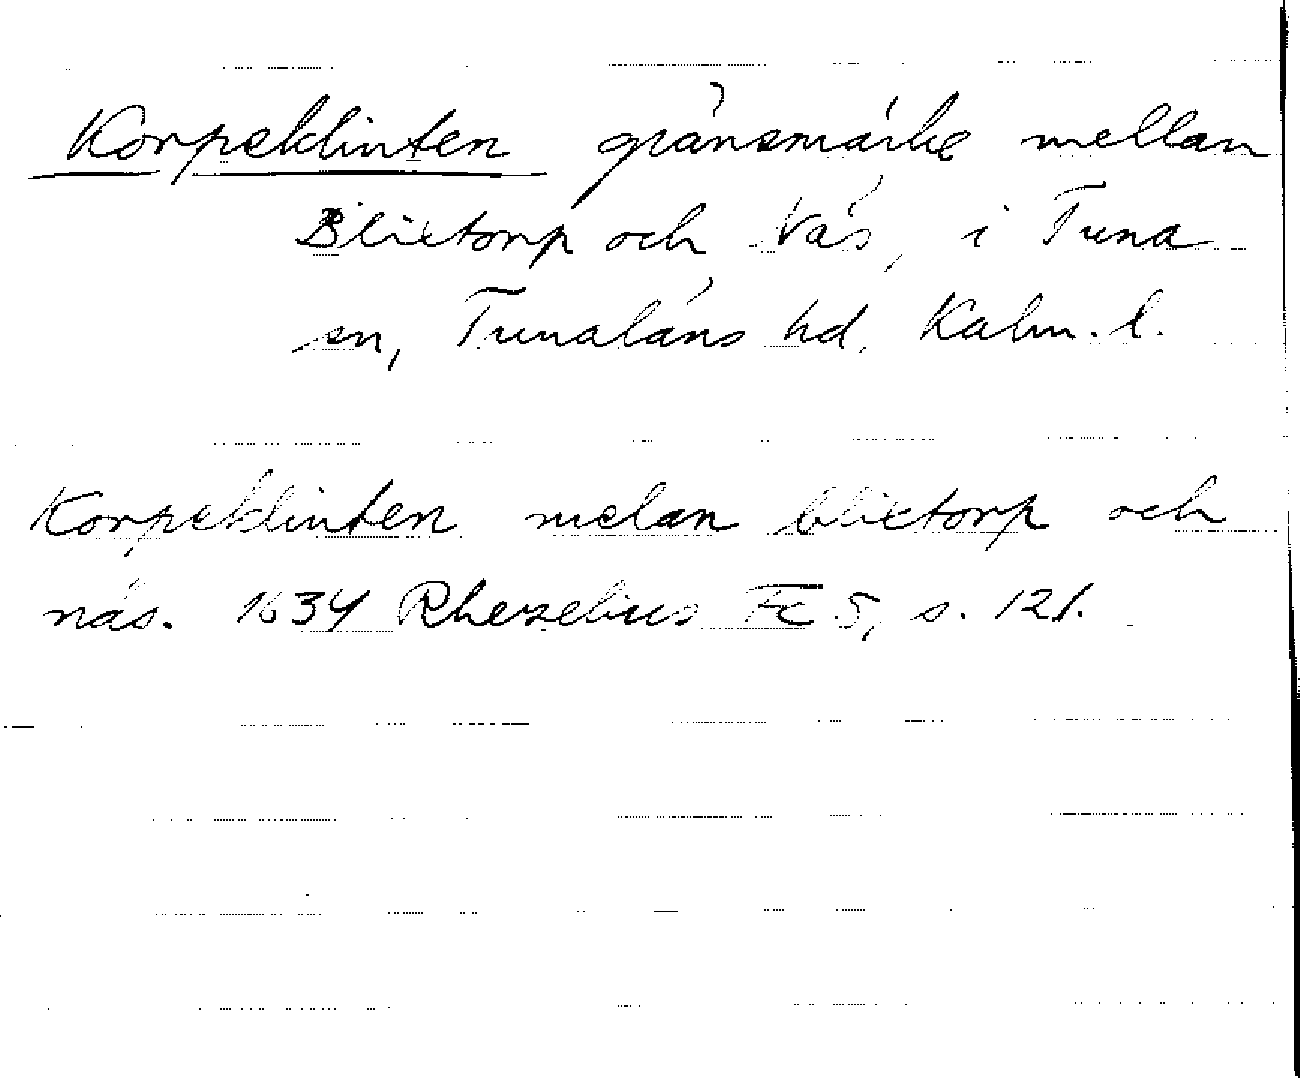 Korpeklinten gränsmärke mellan
Blixtorp och Näs, i Tuna
sn, Tunaläns hd. Kalm. l.
Korpeklinten melan blixtorp och
näs. 1634 Rhezelius Fc 5, s. 121.